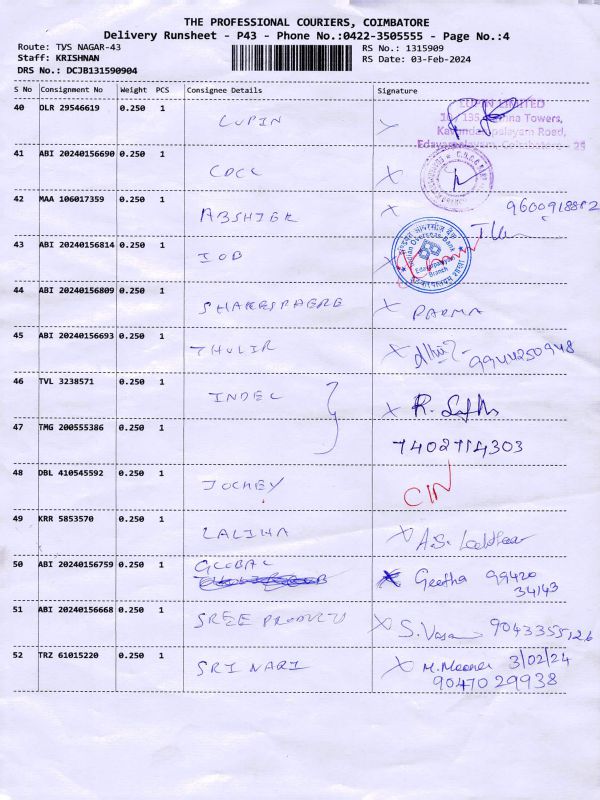 THE PROFESSIONAL COURIERS, COIMBATORE
Delivery Runsheet - P43 - Phone No.:0422-3505555 - Page No.:4
Route: TVS NAGAR-43
RS No.: 1315909
Staff: KRISHNAN
RS Date: 03-Feb-2024
DRS No.: DCJB131590904
S No Consignment No Weight PCS Consignee Details Signature
40 DLR 29546619 0.250 1 LUPIN
LUPIN LIMITED
Towers,
Road,
41 ABI 20240156690 0.250 1
42 MAA 106017359 0.250 1 ABSHIEK 9600918882
43 ABI 20240156814 0.250 1 IOB
Indian Overseas Bank
Branch
44 ABI 20240156809 0.250 1 SHAKESPAERE PADMA
45 ABI 20240156693 0.250 1 THULIR 9944250948
46 TVL 3238571 0.250 1 INDEL R.
47 TMG 200555386 0.250 1
48 DBL 410545592 0.250 1 JOCKEY
49 KRR 5853570 0.250 1 A.S.
50 ABI 20240156759 0.250 1 GLOBAL Geetha 99420
34143
51 ABI 20240156668 0.250 1 SREE PRODUCTS S.
52 TRZ 61015220 0.250 1 SRI NARI M. 3/02/24
90470 29938